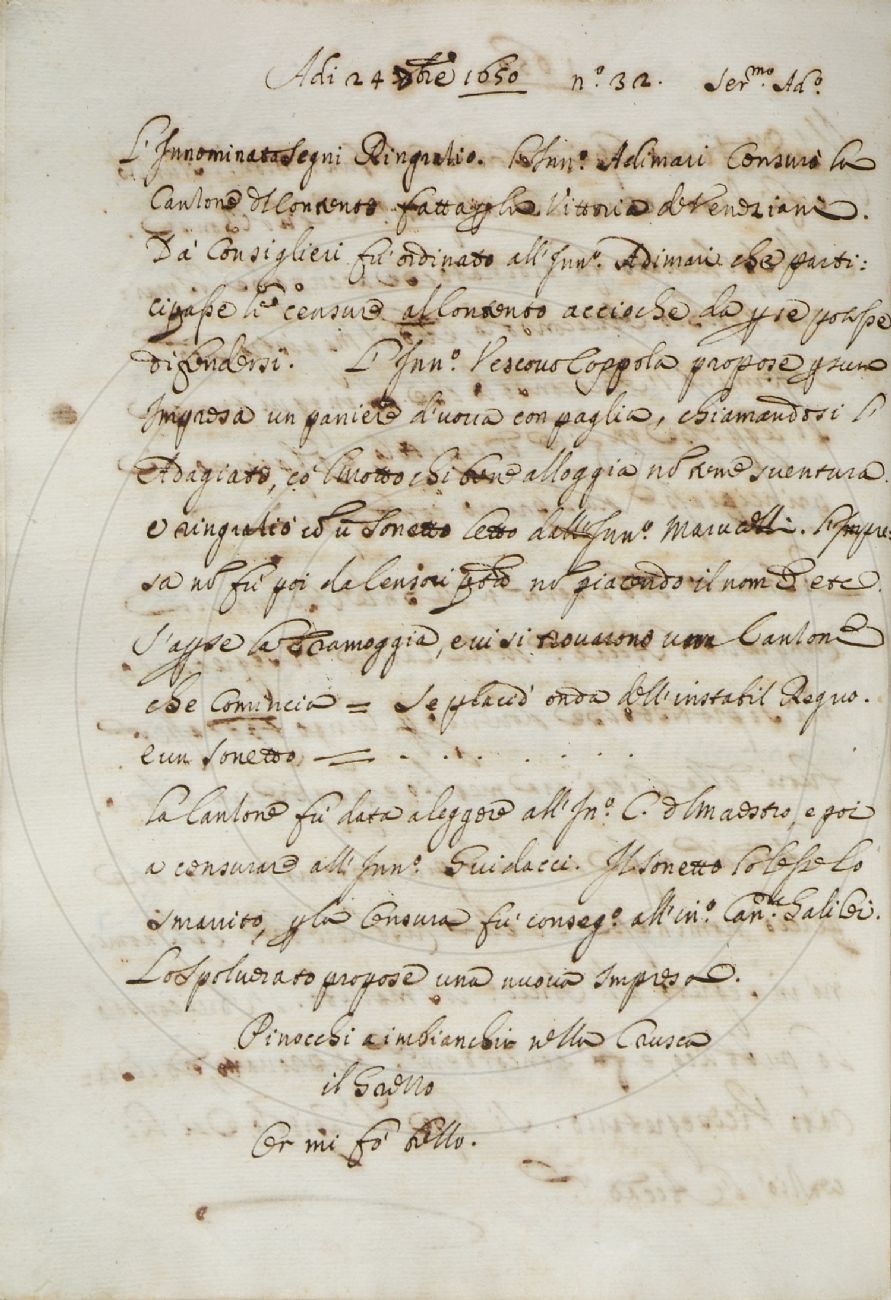 Adi 24 9bre 1650 n.º 32. Ser.mo Ad.º
L'Innominata Segni Ringratio. L'Inn.º Adimari Censurò la
Canzone del Contento fatta p la Vittoria de Veneziani.
Da' Consiglieri fu' ordinato all'Inn.º Adimari che parti:
cipasse le censure al Contento accioche da esse potesse
difendersi. L'Inn.º Vescovo Coppola propose p sua
Impresa un paniere d'uova con paglia, chiamandosi l'
Adagiato, cõ l motto chi bene alloggia nõ teme sventura.
e ringratiò cõ ũ Sonetto letto dall'Inn.º Marucelli. L'Impre:
sa nõ fu' poi da Censori nõ piacendo il nome etc.
S'aperse la Tramoggia, e vi si trovarono una Canzone
che Comincia = Se placid' onda dell'instabil Regno.
e un Sonetto =
La Canzone fu' data a leggere all'In.º C. del Maestro, e poi
a censurare all'Inn.º Guidacci. Il Sonetto lo lesse lo
Smarrito, p la Censura fu' conseg.º all'in.º Can.co Galilei.
Lo Spolverato propose una nuova Impresa.
Pinocchi a imbianchir nella Crusca
il Gretto
Per mi fo' bello.